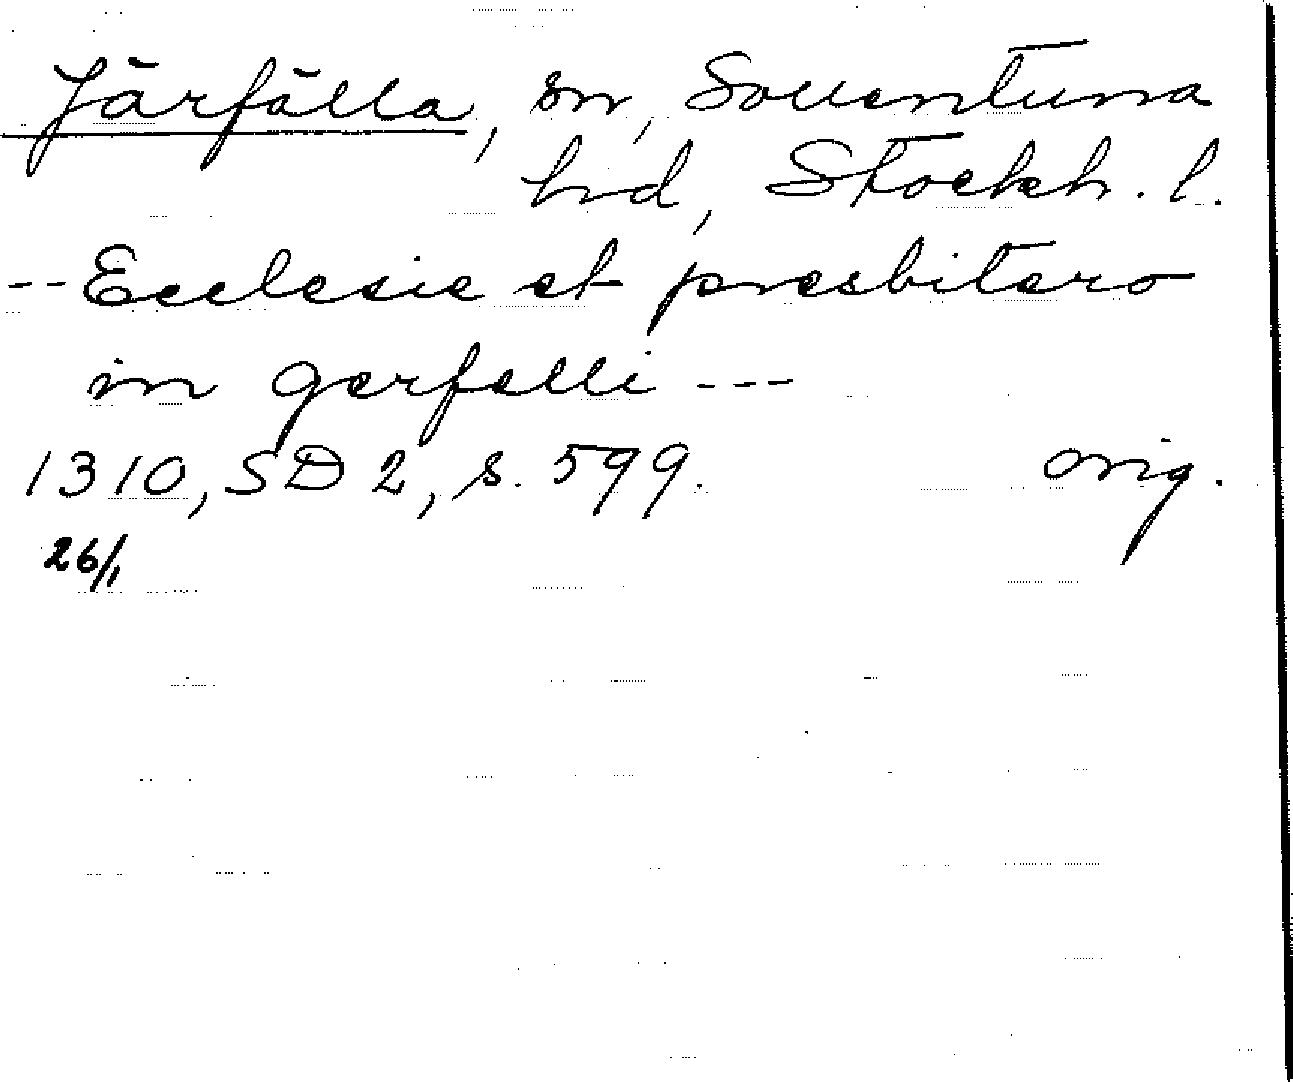 Järfälla, sn, Sollentuna
hd, Stockh. l.
-- Ecclesie et presbitero
in gerfelli ---
1310, SD 2, s. 599. orig.
26/1